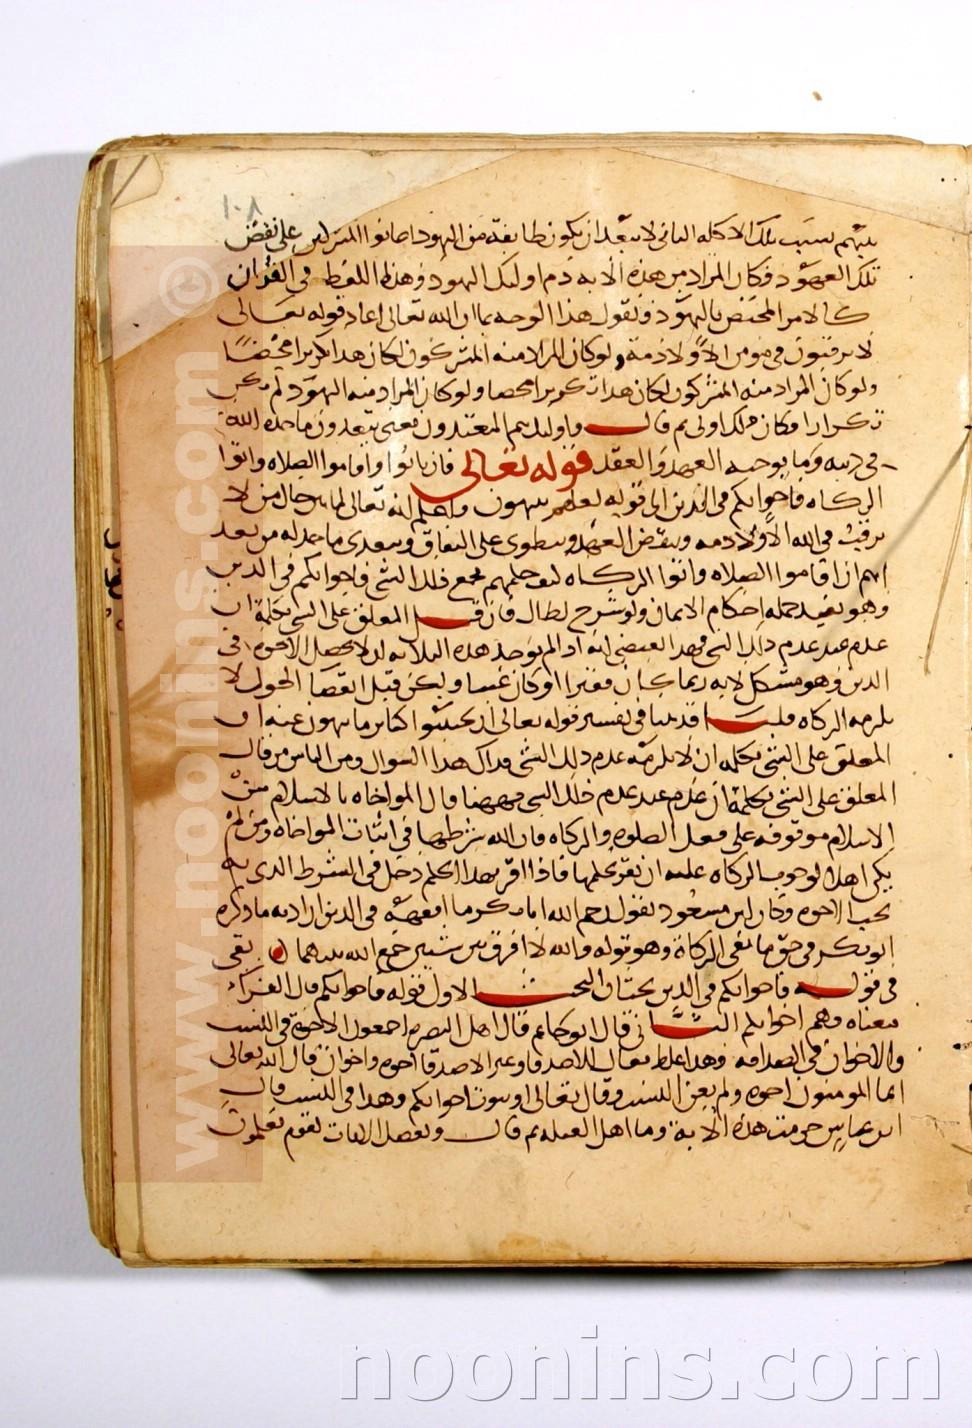 ١٠٨
بينهم بسبب تلك الاكله الثانى لا يبعد ان يكون طايفة من اليهود اعانوا المشركين على نقض
تلك العهود فكان المراد من هذه الاية ذم اوليك اليهود وهذا اللفظ فى القران
كالامر المختص باليهود ونقول هذا الوجه بما ان الله تعالى اعاد قوله تعالى
لا يرقبون فى مومن الاً ولا ذمة ولو كان المراد منه المشركون لكان هذا تكريرا محضا
ولو كان المراد منه المشركون لكان هذا تكريرا محضا ولو كان المراد منه اليهود لم يكن
تكرارا فكان ذلك اولى ثم قال واوليك هم المعتدون يعنى يتعدون ما حده الله
فى دينه وما يوجبه العهد والعقد قوله تعالى فان تابوا واقاموا الصلاه واتوا
الزكاه فاخوانكم فى الدين الى قوله لعلهم ينتهون واعلم انه تعالى لما بين حال من لا
يرقب فى الله الاً ولا ذمه وينقض العهد وينطوى على النفاق ويتعدى ما حد له من بعد
انهم ان اقاموا الصلاه واتوا الزكاه فاخوانكم فى الدين
وهو يفيد جمله احكام الايمان ولو شرح لطال فان قيل المعلق على الشى بكلمة ان
عدم عند عدم ذلك الشى فهذا يقتضى انه اذا لم يوجد هذه الثلاثه ان لا يحصل الاخوه فى
الدين وهو مشكل لانه ربما كان فقيرا او كان غنيا ولكن قبل انقضا الحول لا
يلزمه الزكاه قلنا قد بينا فى تفسير قوله تعالى ان تجتنبوا كباير ما تنهون عنه ان
المعلق على الشى بكلمه ان لا يلزمه عدم ذلك الشى فذاك هذا السوال ومن الناس من قال
المعلق على الشى بكلمة ان عدم عند عدم ذلك الشى فههنا قال المواخاه بالاسلام بين
الاسلام موقوفه على فعل الصلوه والزكاه فان الله شرطها فى اثبات المواخاه ومن لم
يكن اهلا لوجوب الزكاه عليه ان يقر بحكمها فاذا اقر بهذا الحكم دخل فى الشرط الذى به
يجب الاخوه وكان ابن مسعود يقول رحم الله ابا بكر ما افقهه فى الدين اراد به ما ذكره
ابو بكر فى حق مانعى الزكاة وهو قوله والله لا افرق بين شيين جمع الله بينهما بقى
فى قوله فاخوانكم فى الدين بحثان البحث الاول قوله فاخوانكم قال الفراء
معناه فهم اخوانكم الثانى قال ابو حاتم قال اهل البصره اجمعون الاخوة فى النسب
والاخوان فى الصداقه وهذا غلط يقال للاصدقا وغير الاصدقا اخوه واخوان قال الله تعالى
انما المومنون اخوه ولم يعن النسب وقال تعالى او بيوت اخوانكم وهذا فى النسب قال
ابن عباس حرمت هذه الاية دما اهل القبله ثم قال ونفصل الايات لقوم يعلمون
www.noonins.com ©
noonins.com